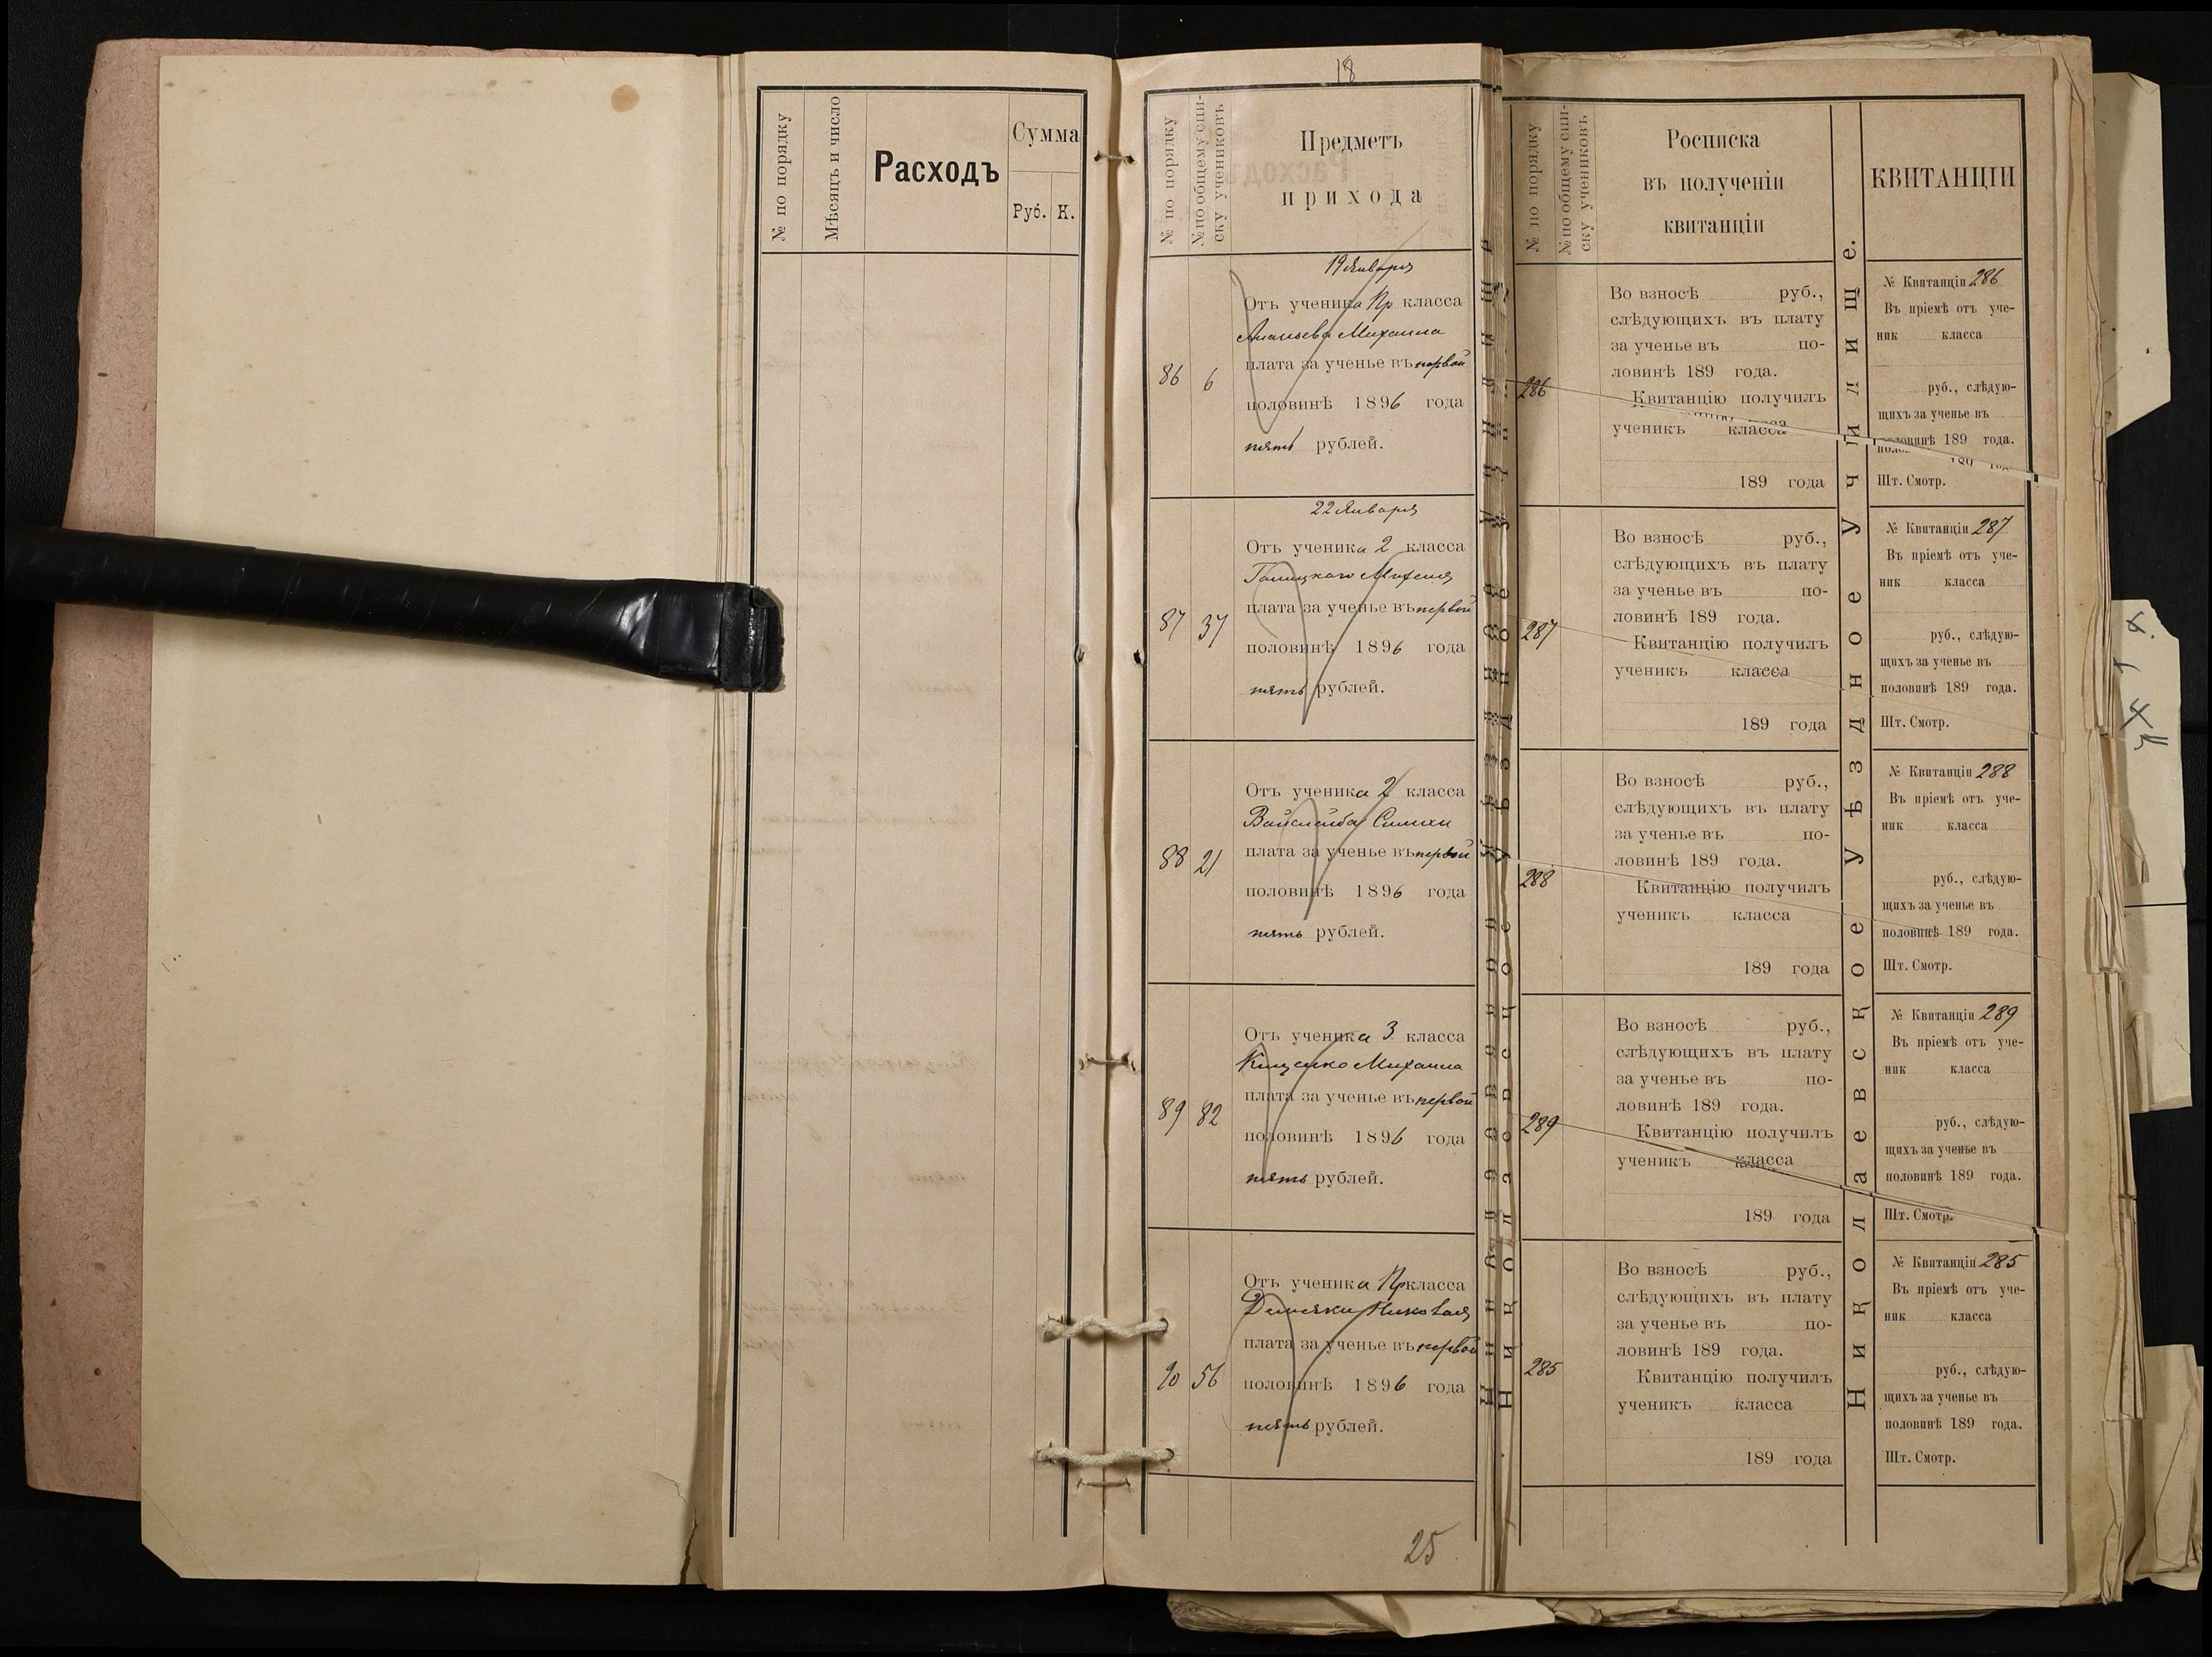 № по порядку
Мѣсяцъ и число
Расходъ
Сумма
Руб. К.
18
№ по порядку
№ по общему спи-
ску учениковъ
Предметъ
прихода
19 Января
Отъ ученика Пр класса
Ананьева Михаила
плата за ученье въ первой
86 6
половинѣ 1896 года
пять рублей.
22 Января
Отъ ученика 2 класса
плата за ученье въ первой
87 37
половинѣ 1896 года
пять рублей.
Отъ ученика 2 класса
плата за ученье въ первой
88 21
половинѣ 1896 года
пять рублей.
Отъ ученика 3 класса
Кищенко Михаила
плата за ученье въ первой
89 82
половинѣ 1896 года
пять рублей.
Отъ ученика Пр класса
Николая
плата за ученье въ первой
90 56
половинѣ 1896 года
пять рублей.
25
№ по порядку
№ по общему спи-
ску учениковъ
Росписка
въ полученіи
квитанціи
286
Во взносѣ руб.,
слѣдующихъ въ плату
за ученье въ по-
ловинѣ 189 года.
Квитанцію получилъ
ученикъ класса
189 года
287
Во взносѣ руб.,
слѣдующихъ въ плату
за ученье въ по-
ловинѣ 189 года.
Квитанцію получилъ
ученикъ класса
189 года
288
Во взносѣ руб.,
слѣдующихъ въ плату
за ученье въ по-
ловинѣ 189 года.
Квитанцію получилъ
ученикъ класса
189 года
289
Во взносѣ руб.,
слѣдующихъ въ плату
за ученье въ по-
ловинѣ 189 года.
Квитанцію получилъ
ученикъ класса
189 года
285
Во взносѣ руб.,
слѣдующихъ въ плату
за ученье въ по-
ловинѣ 189 года.
Квитанцію получилъ
ученикъ класса
189 года
Николаевское Уѣздное Училище.
КВИТАНЦІИ
№ Квитанціи 286
Въ пріемѣ отъ уче-
ник класса
руб., слѣдую-
щихъ за ученье въ
половинѣ 189 года.
Шт. Смотр.
№ Квитанціи 287
Въ пріемѣ отъ уче-
ник класса
руб., слѣдую-
щихъ за ученье въ
половинѣ 189 года.
Шт. Смотр.
№ Квитанціи 288
Въ пріемѣ отъ уче-
ник класса
руб., слѣдую-
щихъ за ученье въ
половинѣ 189 года.
Шт. Смотр.
№ Квитанціи 289
Въ пріемѣ отъ уче-
ник класса
руб., слѣдую-
щихъ за ученье въ
половинѣ 189 года.
Шт. Смотр.
№ Квитанціи 285
Въ пріемѣ отъ уче-
ник класса
руб., слѣдую-
щихъ за ученье въ
половинѣ 189 года.
Шт. Смотр.